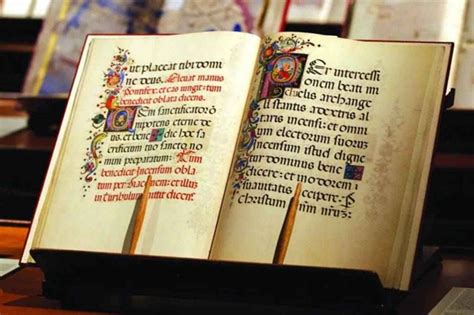 ut placeat tibi domi
ne deus. Elevat manus
Pontifex: et eas iungit: tum
benedicit oblata dicens.
Veni sanctificator o
mnipotens eterne de
us. et bene dic hoc sa
crificium tuo sancto no
mini preparatum: Tum
benedicit Incensum obla
tum per Diaconem: et illud
in thuribulum mittit dicens.
Per intercessi
onem beati mi
chaelis archange
li stantis a dextris al
taris incensi: et omni
um electorum suorum
incensum istud digne
tur dominus bene
dicere: et in odorem
suavitatis accipere: per
christum